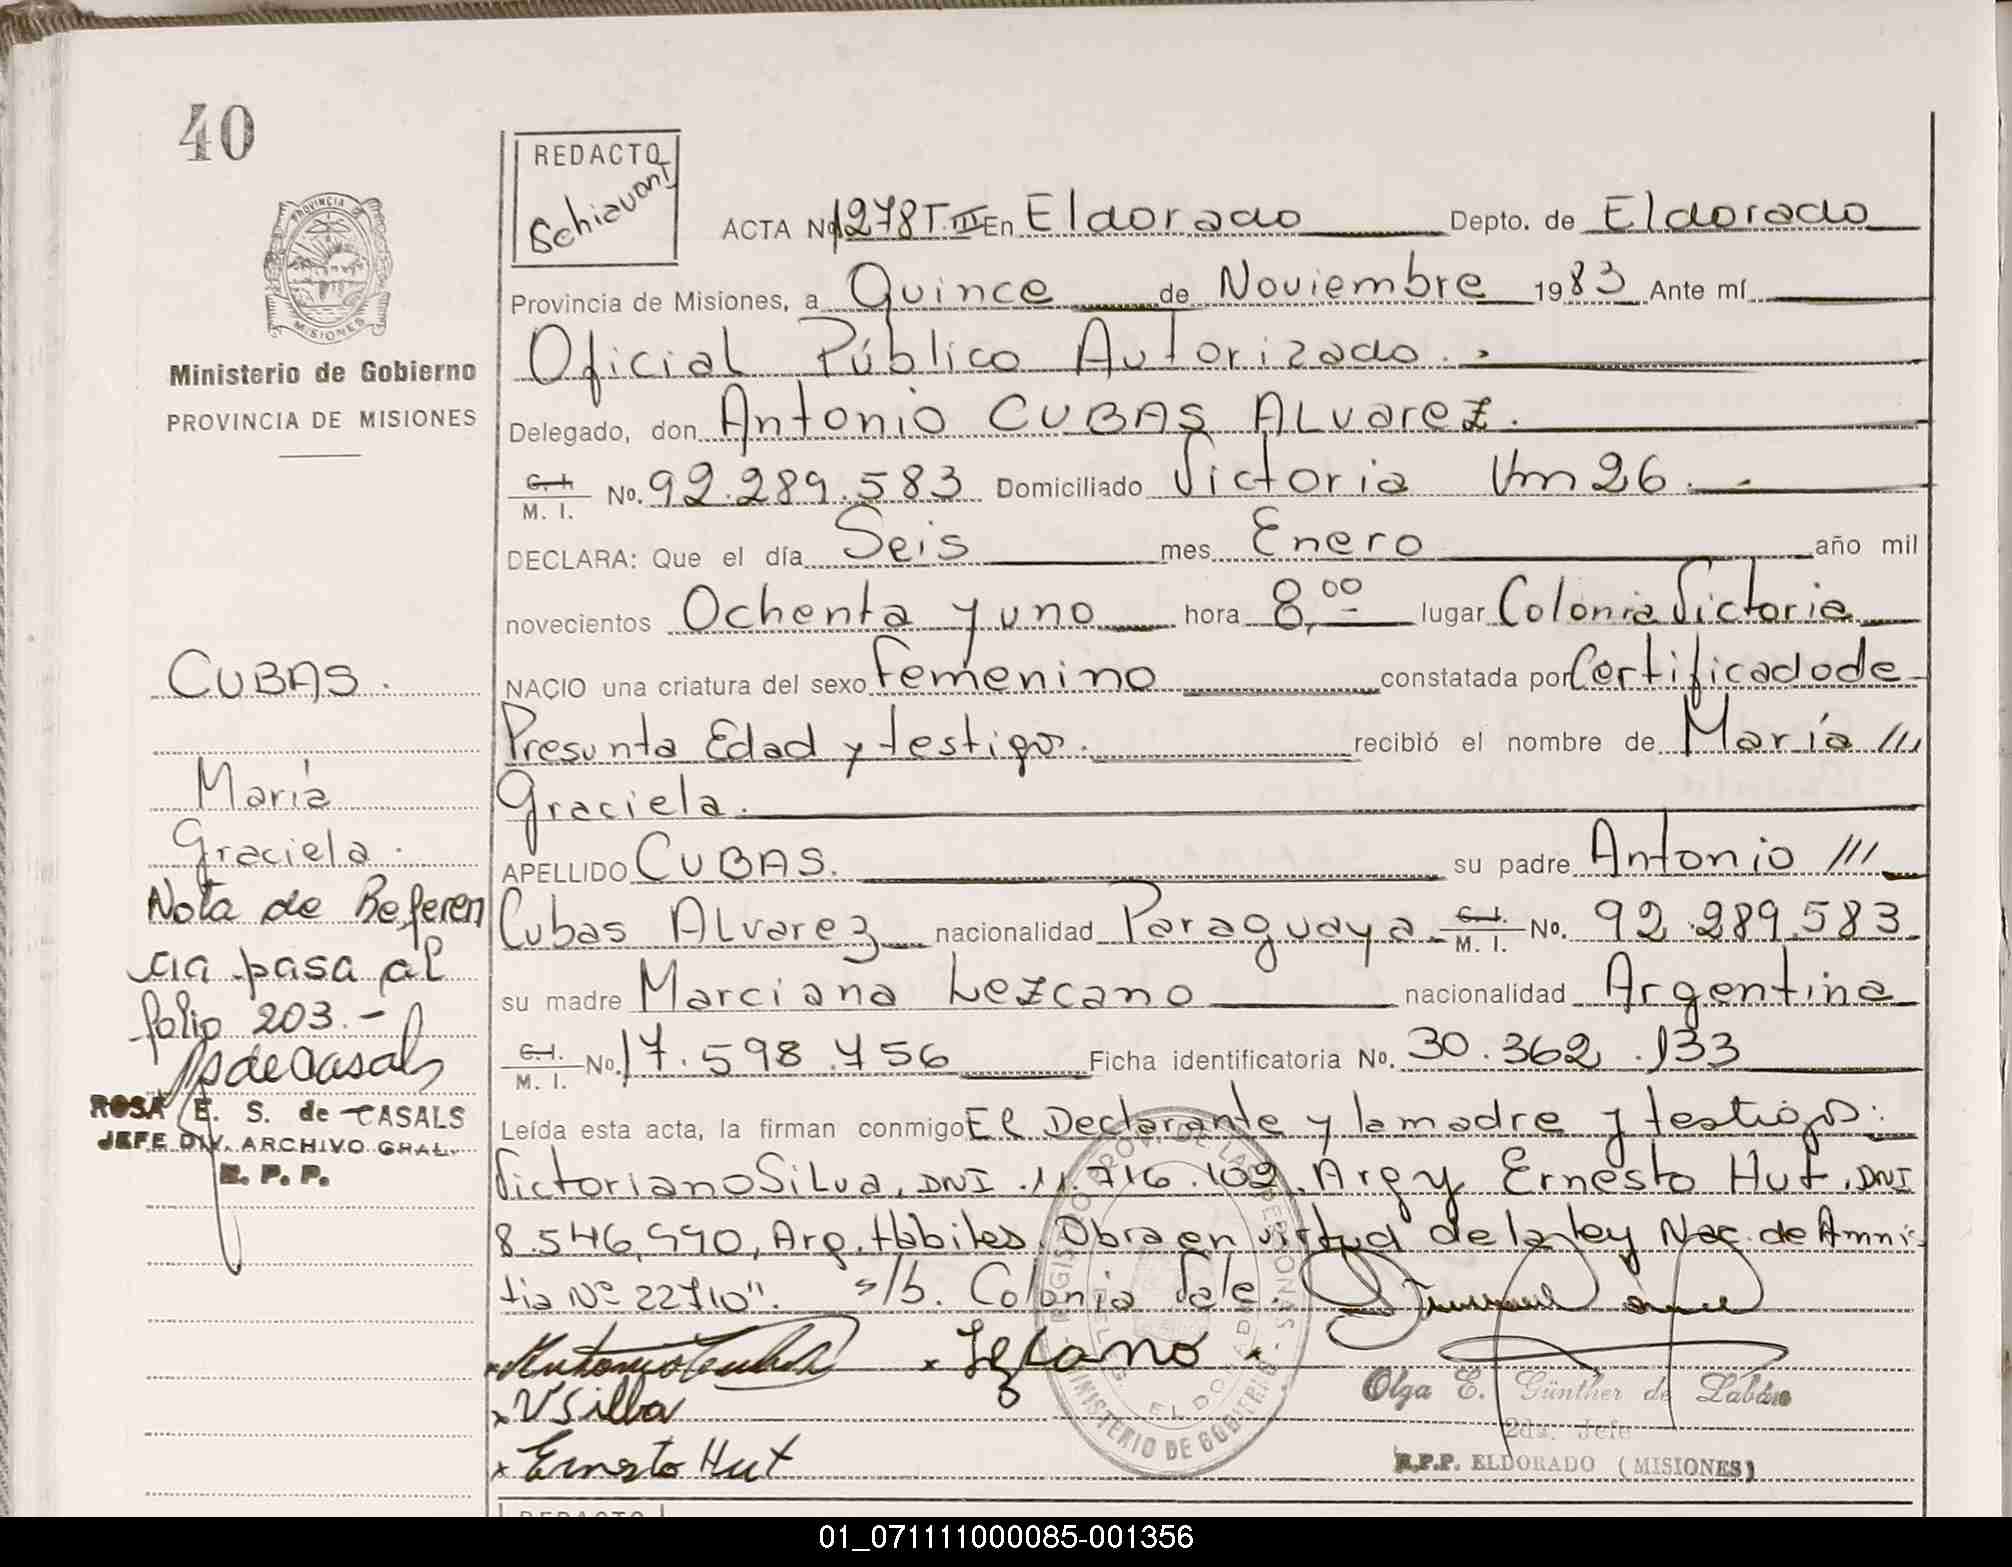 40
PROVINCIA
MISIONES
Ministerio de Gobierno
PROVINCIA DE MISIONES
REDACTO
Schiavoni
ACTA No 1278 T. III En Eldorado Depto. de Eldorado
Provincia de Misiones, a Quince de Noviembre 1983 Ante mí
Oficial Público Autorizado.
Delegado, don Antonio CUBAS ALvarez.
C. I. M. I. No. 92.289.583 Domiciliado Victoria Km 26.
DECLARA: Que el día Seis mes Enero año mil
novecientos Ochenta y uno hora 8,00 lugar Colonia Victoria
NACIO una criatura del sexo Femenino constatada por Certificado de
Presunta Edad y testigos. recibió el nombre de María ///
Graciela.
APELLIDO CUBAS. su padre Antonio ///
Cubas ALvarez nacionalidad Paraguaya C. I. M. I. No. 92.289.583
su madre Marciana Lezcano nacionalidad Argentina
C. I. M. I. No. 17.598.756 Ficha identificatoria No. 30.362.133
Leída esta acta, la firman conmigo El Declarante y la madre y testigos:
Victoriano Silva, DNI. 11.716.102, Arg y Ernesto Hut, DNI
8.546,990, Arg. Hábiles. Obra en virtud de la Ley Nac. de Amnis-
tia Nº 22710". s/b. Colonia Vale.
Lezcano
VSilba
Ernesto Hut
Olga E. Günther de Labán
2da. Jefe
R.P.P. ELDORADO (MISIONES)
MINISTERIO DE GOBIERNO
ELDORADO
CUBAS.
María
Graciela.
Nota de Referen
cia pasa al
folio 203.-
ROSA E. S. de CASALS
JEFE DIV. ARCHIVO GRAL.
R. P. P.
REDACTO
01_071111000085-001356